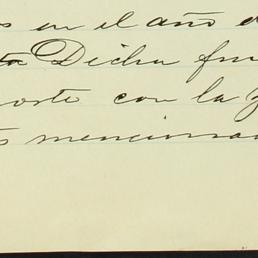 s en el año d
ta Dicha fin
oste con la
s menciona